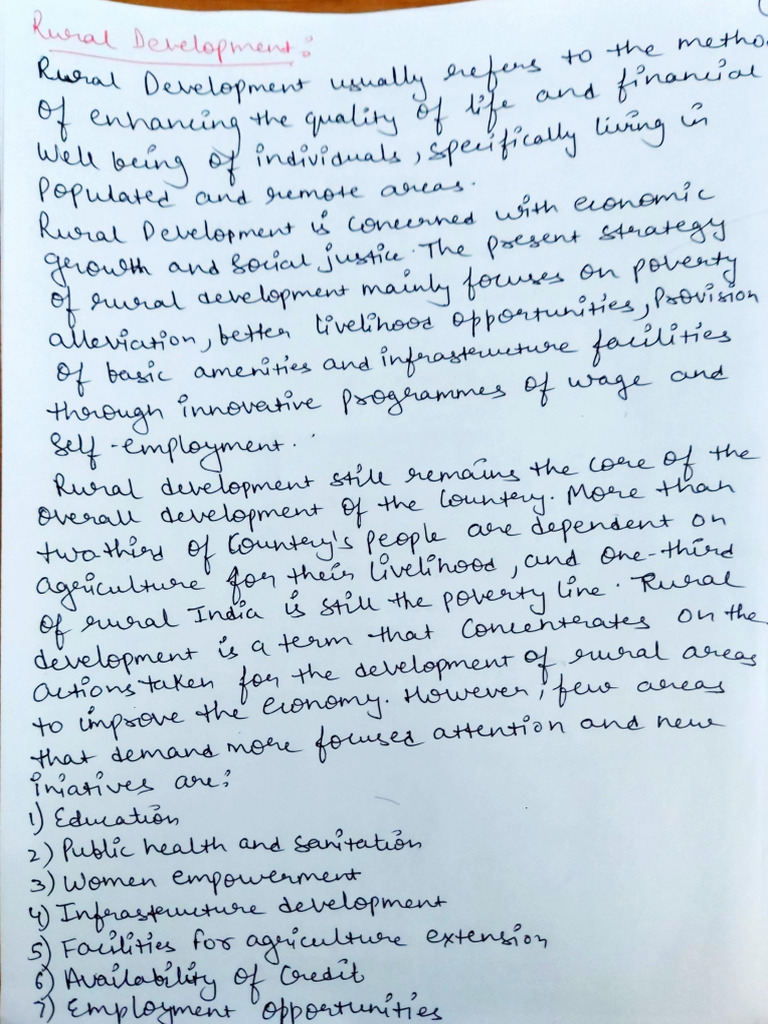 Rural Development:
Rural Development usually refers to the metho
of enhancing the quality of life and financial
Well being of individuals, specifically living in
Populated and remote areas.
Rural Development is Concerned with economic
growth and Social justice. The present strategy
of rural development mainly focuses on poverty
alleviation, better livelihood opportunities, Provision
of basic amenities and infrastructure facilities
through innovative programmes of wage and
Self-employment.
Rural development still remains the core of the
overall development of the Country. More than
two third of Country's people are dependent on
agriculture for their livelihood, and one-third
of rural India is still the poverty line. Rural
development is a term that Concentrates on the
actions taken for the development of rural areas
to improve the economy. However, few areas
that demand more focused attention and new
iniatives are:
1) Education
2) Public health and Sanitation
3) Women empowerment
4) Infrastructure development
5) Facilities for agriculture extension
6) Availability of Credit
7) Employment opportunities